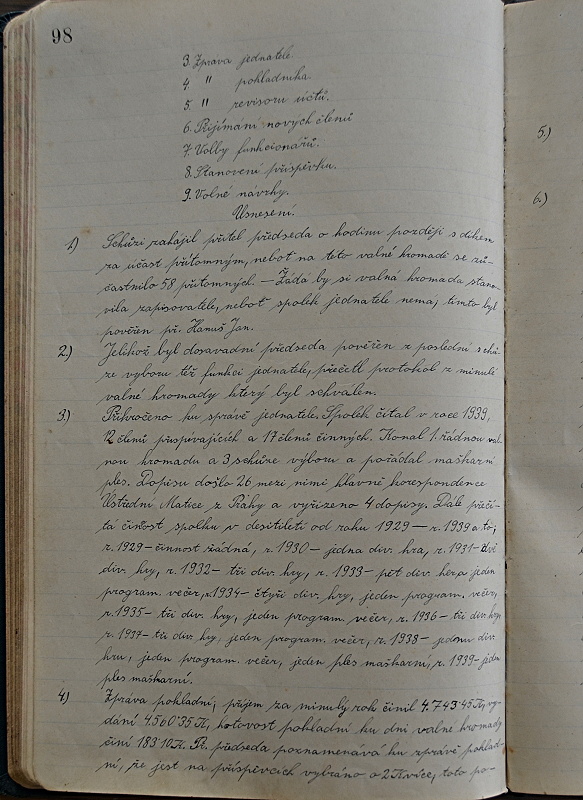 98
3. Zpráva jednatele
4. " pokladníka.
5. " revisorů účtů.
6. Přijímání nových členů
7. Volby funkcionářů.
8. Stanovení příspěvku.
9. Volné návrhy.
Usnesení.
1) Schůzi zahájil přítel předseda o hodinu později s díkem
za účast přítomným, neboť na této valné hromadě se zú-
častnilo 58 přítomných. — Žádá by si valná hromada stano-
vila zapisovatele, neboť spolek jednatele nemá, tímto byl
pověřen př. Hanuš Jan.
2) Jelikož byl dosavadní předseda pověřen z poslední schů-
ze výboru též funkcí jednatele, přečetl protokol z minulé
valné hromady který byl schválen.
3) Přikročeno ku správě jednatele. Spolek čítal v roce 1939,
12 členů přispívajících a 17 členů činných. Konal 1. řádnou val-
nou hromadu a 3 schůze výboru a pořádal maškarní
ples. Dopisů došlo 26 mezi nimi hlavně korespondence
Ústřední Matice z Prahy a vyřízeno 4 dopisy. Dále přečí-
tá činnost spolku v desítiletí od roku 1929 — r. 1939 a to;
r. 1929 — činnost řádná, r. 1930 — jedna div. hra, r. 1931 — dvě
div. hry, r. 1932 — tři div. hry, r. 1933 — pět div. her a jeden
program. večer, r. 1934 — čtyři div. hry, jeden program. večer,
r. 1935 — tři div. hry, jeden program. večer, r. 1936 — tři div. hry,
r. 1937 — tři div. hry, jeden program. večer, r. 1938 — jednu div.
hru, jeden program. večer, jeden ples maškarní, r. 1939 — jeden
ples maškarní.
4) Zpráva pokladní, příjem za minulý rok činil 4.743'45 K, vy-
dání 4560'35 K, hotovost pokladní ku dni valné hromady
činí 183'10 K. Př. předseda poznamenává ku zprávě poklad-
ní, že jest na příspěvcích vybráno o 2 K více, toto po-
5.)
6.)